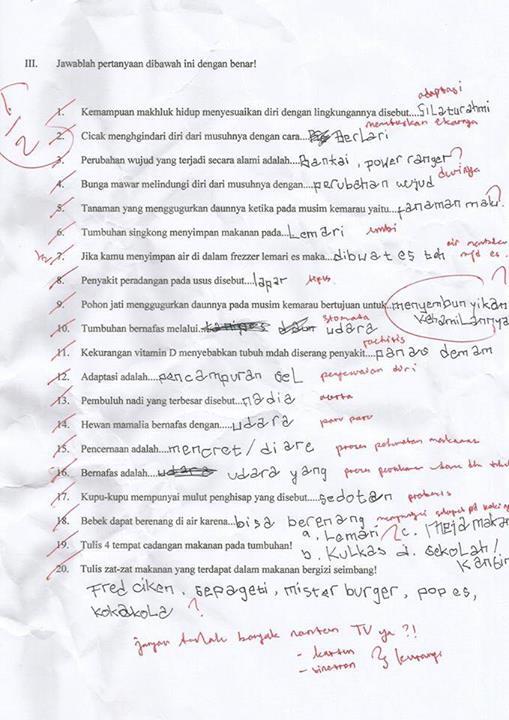 III. Jawablah pertanyaan dibawah ini dengan benar!
adaptasi
1. Kemampuan makhluk hidup menyesuaikan diri dengan lingkungannya disebut....Silaturahmi
memutuskan ekornya
2. Cicak menghgindari diri dari musuhnya dengan cara.... Berlari
3. Perubahan wujud yang terjadi secara alami adalah....Bantai, power ranger ?
durinya
4. Bunga mawar melindungi diri dari musuhnya dengan....perubahan wujud
5. Tanaman yang menggugurkan daunnya ketika pada musim kemarau yaitu....tanaman maki. ?
6. Tumbuhan singkong menyimpan makanan pada....Lemari umbi
7. Jika kamu menyimpan air di dalam frezzer lemari es maka...dibwat es teh air membeku mjd es.
8. Penyakit peradangan pada usus disebut....lapar tipus
9. Pohon jati menggugurkan daunnya pada musim kemarau bertujuan untuk..menyembunyikan kehamilannya ?
stomata
10. Tumbuhan bernafas melalui.... udara
rachitis
11. Kekurangan vitamin D menyebabkan tubuh mdah diserang penyakit....panas demam
12. Adaptasi adalah....pencampuran SEL penyesuaian diri
13. Pembuluh nadi yang terbesar disebut....nadia aorta
14. Hewan mamalia bernafas dengan.....udara paru paru
15. Pencernaan adalah....mencret/diare proses pelumatan makanan
16. Bernafas adalah.... udara yang proses
17. Kupu-kupu mempunyai mulut penghisap yang disebut....sedotan probosis
18. Bebek dapat berenang di air karena...bisa berenang mempunyai selaput pd kaki
19. Tulis 4 tempat cadangan makanan pada tumbuhan! a. Lemari c. meja makan
b. Kulkas d. sekolah/ kantin
20. Tulis zat-zat makanan yang terdapat dalam makanan bergizi seimbang!
Fred ciken, sepageti, mister burger, pop es,
kokakola ?
jangan terlalu banyak nonton TV ya ?!
- kartun
- sinetron } kurangi